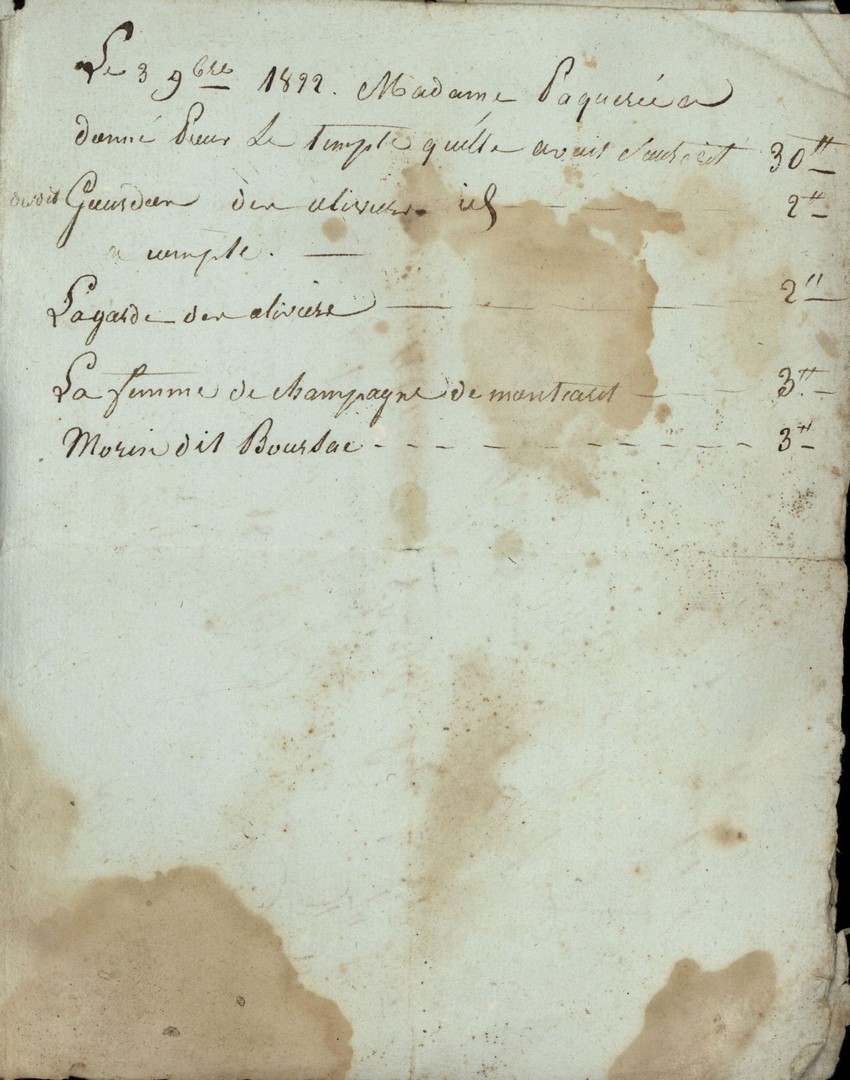 Le 3 9bre 1822. Madame Paquerée a
donné Pour Le temple quelle avait Souscrit 30#
Gourdon des oliviers - 2#
a compte. —
Lagarde des oliviers — 2#
La femme de champagne de montcaret — 3#
Morin dit Boursac - - - - - - - - 3#